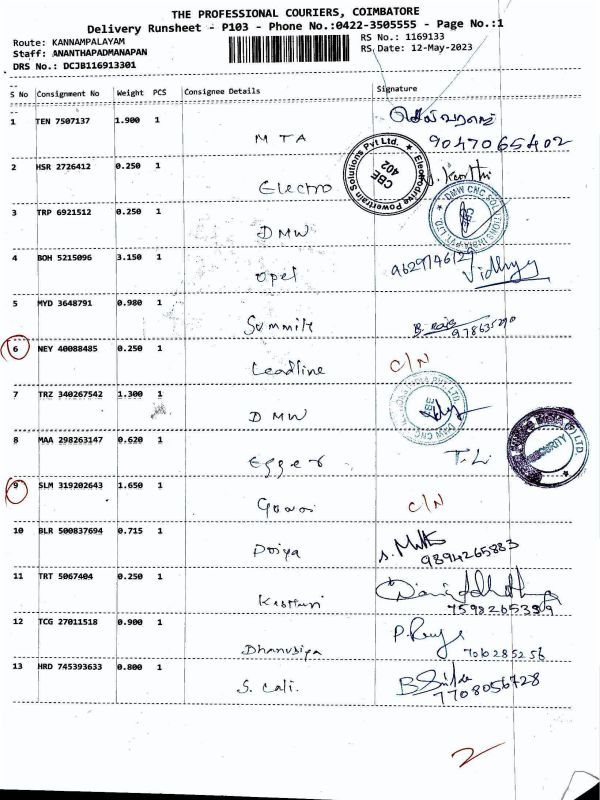 THE PROFESSIONAL COURIERS, COIMBATORE
Delivery Runsheet - P103 - Phone No.:0422-3505555 - Page No.:1
Route: KANNAMPALAYAM
RS No.: 1169133
Staff: ANANTHAPADMANAPAN
RS Date: 12-May-2023
DRS No.: DCJB116913301
S No Consignment No Weight PCS Consignee Details Signature
1 TEN 7507137 1.900 1
MTA 9047065402
2 HSR 2726412 0.250 1
Electro
Electrodrive Powertrain Solutions Pvt Ltd.
CBE
402
3 TRP 6921512 0.250 1
DMW
DMW CNC SOLUTIONS INDIA PVT. LTD.
4 BOH 5215096 3.150 1
Opel Vidhya
5 MYD 3648791 0.980 1
Summits
6 NEY 40088485 0.250 1
Leadline C/N
7 TRZ 340267542 1.300 1
DMW
8 MAA 298263147 0.620 1
Egger T.L
9 SLM 319202643 1.650 1
C/N
10 BLR 500837694 0.715 1
Priya 9894265883
11 TRT 5067404 0.250 1
Kasthuri 7598265339
12 TCG 27011518 0.900 1
Dhanusiya
13 HRD 745393633 0.800 1
S. Cali. 7708056728
2